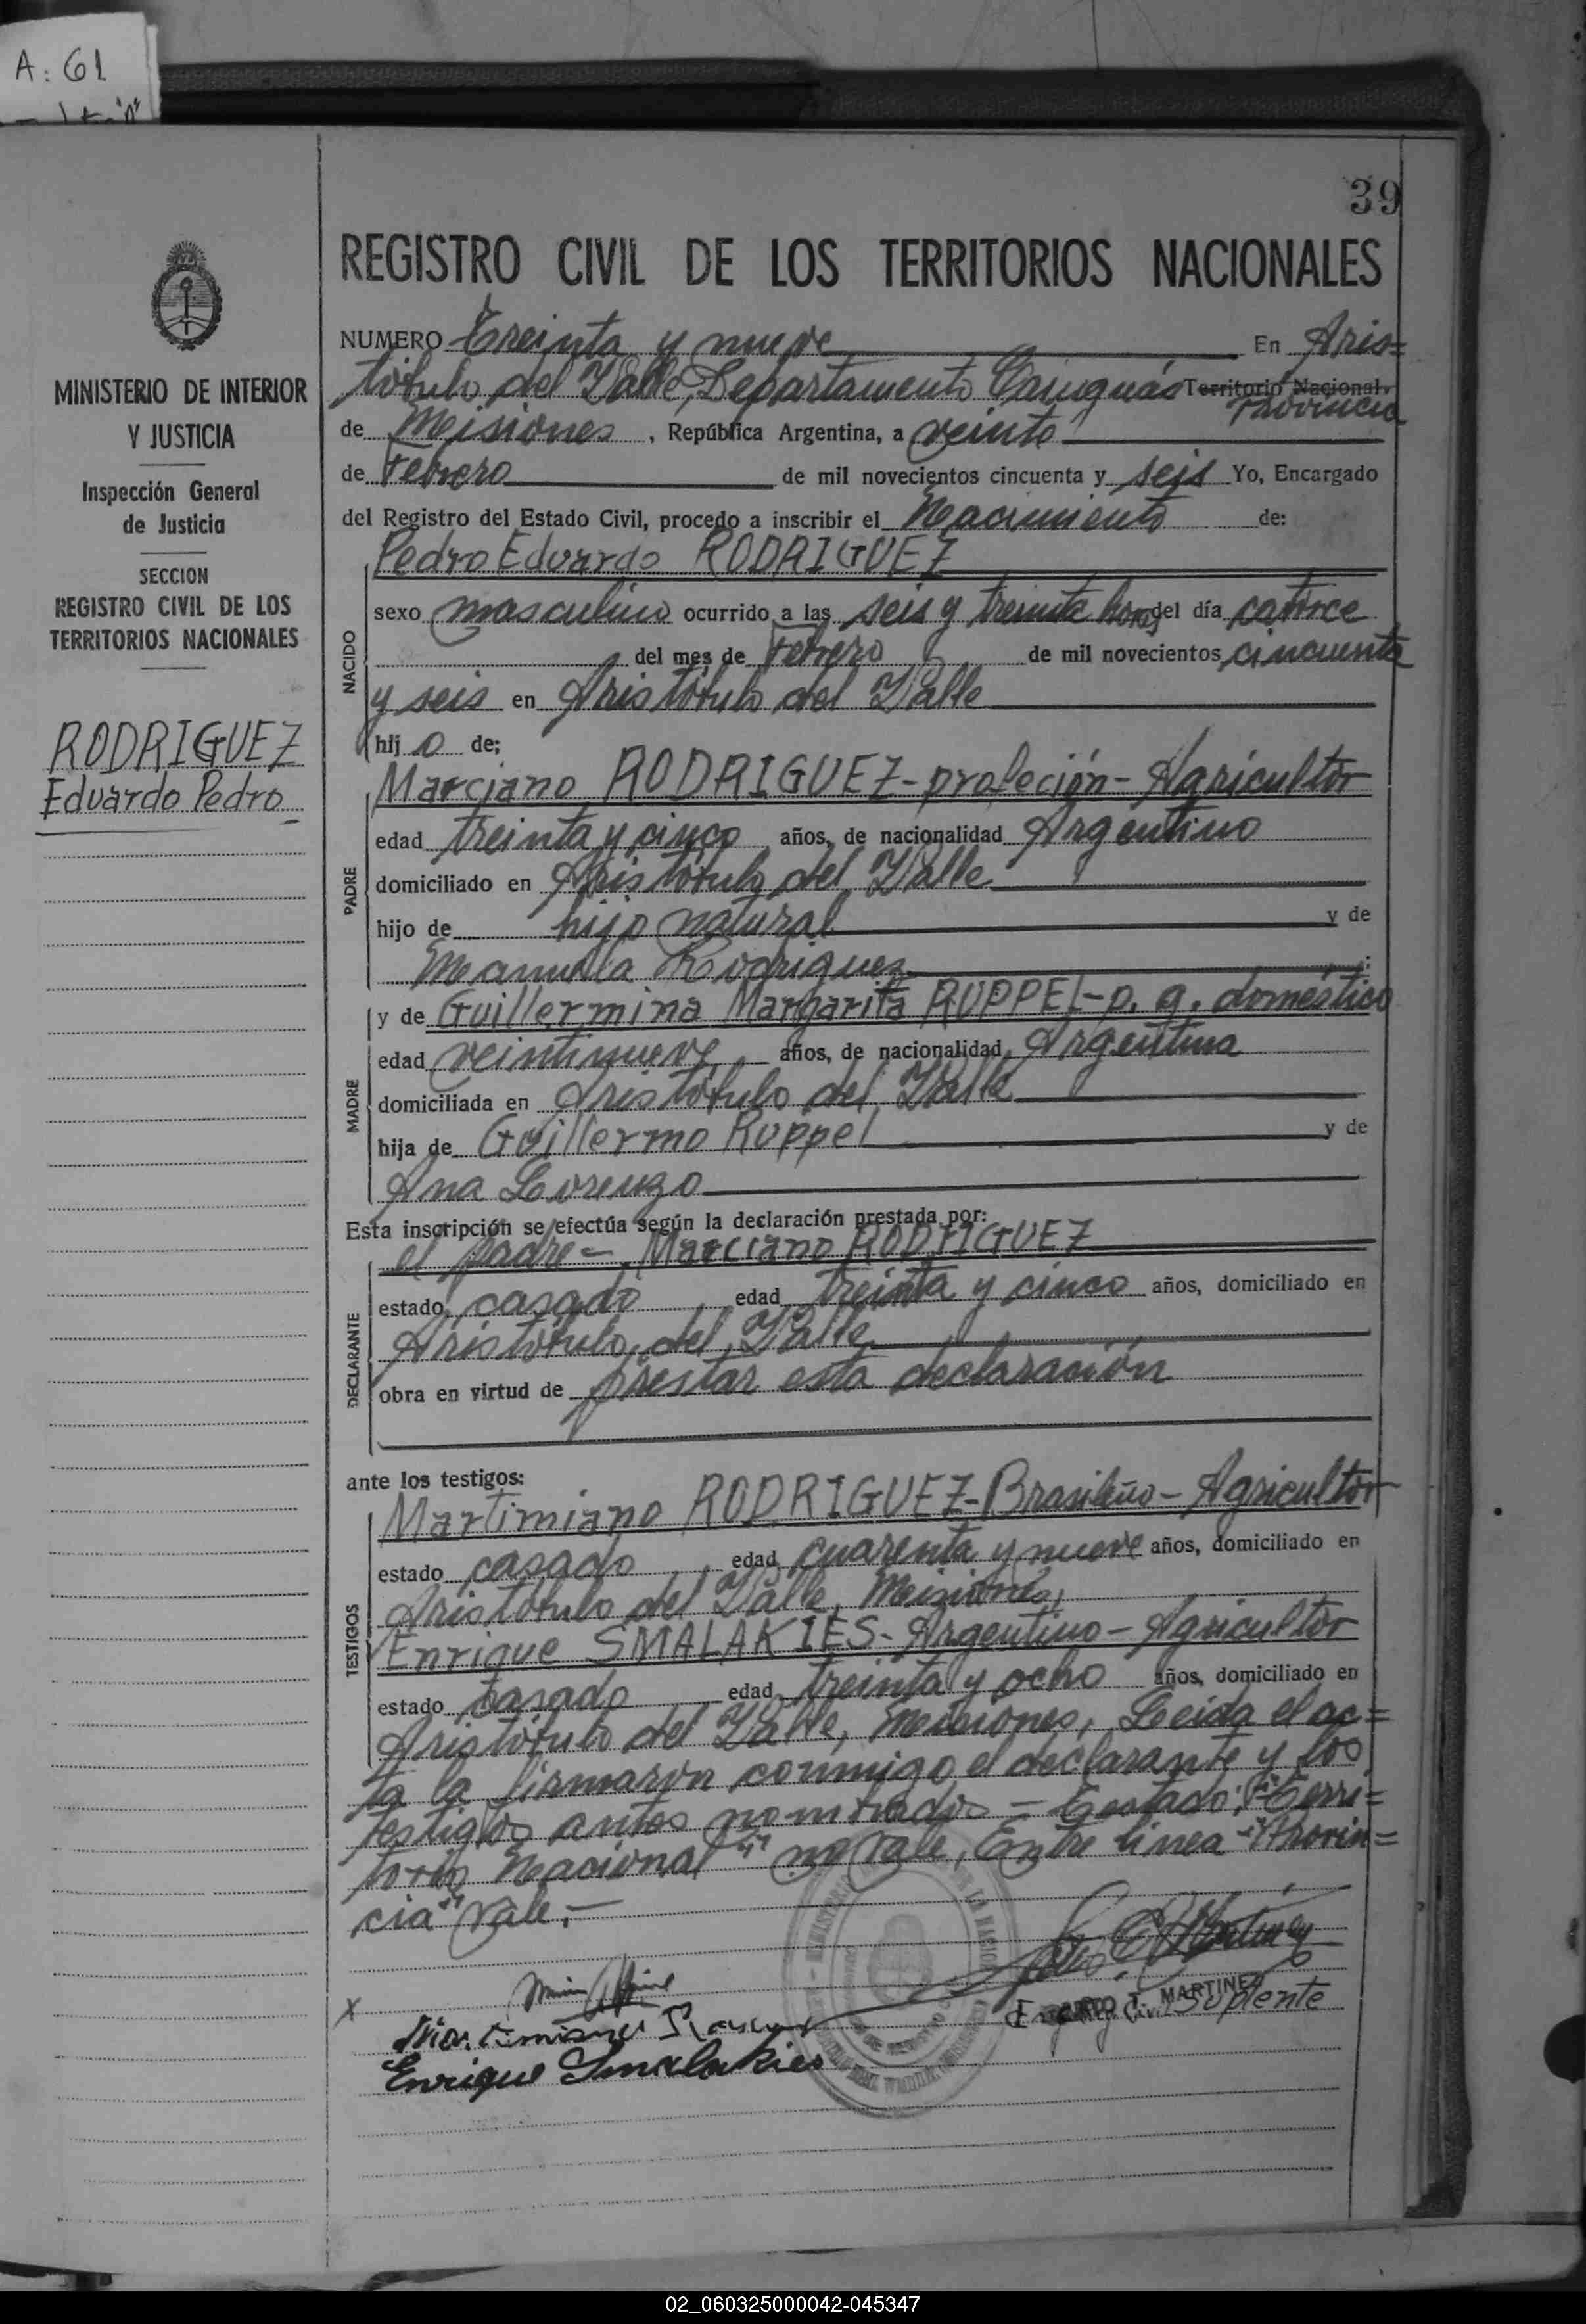 A: 61
39
MINISTERIO DE INTERIOR
Y JUSTICIA
Inspección General
de Justicia
SECCION
REGISTRO CIVIL DE LOS
TERRITORIOS NACIONALES
RODRIGUEZ
Eduardo Pedro
REGISTRO CIVIL DE LOS TERRITORIOS NACIONALES
NUMERO Treinta y nueve En Aris=
tóbulo del Valle, Departamento Cainguás Territorio Nacional
Provincia
de Misiones, República Argentina, a veinte
de Febrero de mil novecientos cincuenta y seis Yo, Encargado
del Registro del Estado Civil, procedo a inscribir el Nacimiento de:
Pedro Eduardo RODRIGUEZ
NACIDO
sexo masculino ocurrido a las seis y treinta horas del día catorce
del mes de Febrero de mil novecientos cincuenta
y seis en Aristóbulo del Valle
hijo de;
PADRE
Marciano RODRIGUEZ-profeción-Agricultor
edad treinta y cinco años, de nacionalidad Argentino
domiciliado en Aristóbulo del Valle
hijo de hijo natural y de
Manuela Rodriguez
MADRE
y de Guillermina Margarita RUPPEL-p. q. doméstico
edad veintinueve años, de nacionalidad Argentina
domiciliada en Aristóbulo del Valle
hija de Guillermo Ruppel y de
Ana Lorenzo
Esta inscripción se efectúa según la declaración prestada por:
DECLARANTE
el padre = Marciano RODRIGUEZ
estado casado edad treinta y cinco años, domiciliado en
Aristóbulo del Valle
obra en virtud de prestar esta declaración
ante los testigos:
TESTIGOS
Martimiano RODRIGUEZ-Brasileño-Agricultor
estado casado edad cuarenta y nueve años, domiciliado en
Aristóbulo del Valle, Misiones,
Enrique SMALAKIES-Argentino-Agricultor
estado casado edad treinta y ocho años, domiciliado en
Aristóbulo del Valle, Misiones, Leida el ac=
ta la firmaron conmigo el declarante y los
testigos antes nombrados = Testado: "Terri=
torio Nacional" no vale, Entre linea "Provin=
cia" vale.-
X
MARTINEZ
Suplente
Enrique Smalakies
02_060325000042-045347